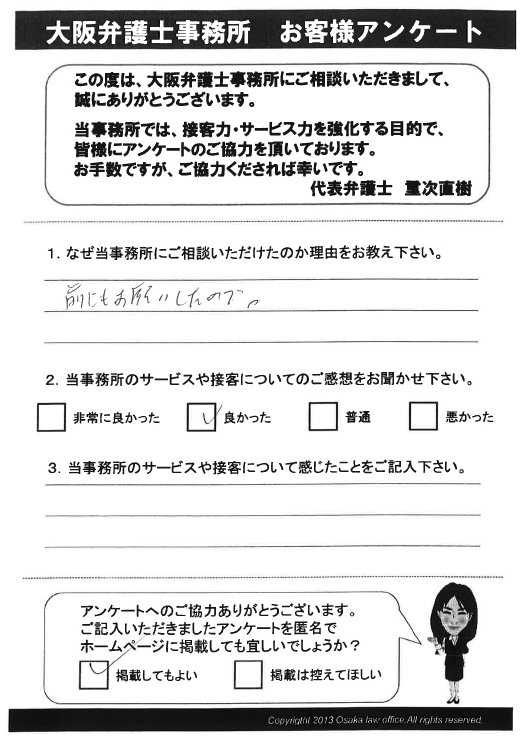 大阪弁護士事務所　お客様アンケート
この度は、大阪弁護士事務所にご相談いただきまして、
誠にありがとうございます。
当事務所では、接客力・サービス力を強化する目的で、
皆様にアンケートのご協力を頂いております。
お手数ですが、ご協力くだされば幸いです。
代表弁護士　重次直樹
1. なぜ当事務所にご相談いただけたのか理由をお教え下さい。
前にもお願いしたので。
2. 当事務所のサービスや接客についてのご感想をお聞かせ下さい。
非常に良かった　良かった　普通　悪かった
3. 当事務所のサービスや接客について感じたことをご記入下さい。
アンケートへのご協力ありがとうございます。
ご記入いただきましたアンケートを匿名で
ホームページに掲載しても宜しいでしょうか？
掲載してもよい　掲載は控えてほしい
Copyright 2013 Osaka law office. All rights reserved.